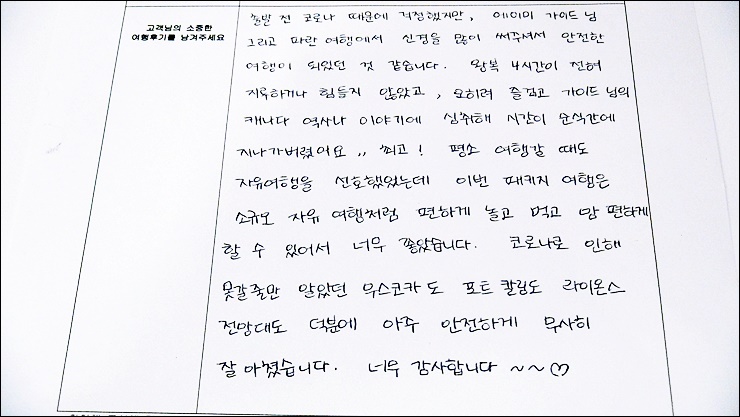 고객님의 소중한
여행후기를 남겨주세요
출발 전 코로나 때문에 걱정했지만, 에이미 가이드님
그리고 파란여행에서 신경을 많이 써주셔서 안전한
여행이 되었던 것 같습니다. 왕복 4시간이 전혀
지루하거나 힘들지 않았고, 오히려 즐겁고 가이드님의
캐나다 역사나 이야기에 심취해 시간이 순식간에
지나가버렸어요,, 최고! 평소 여행갈 때도
자유여행을 선호했었는데 이번 패키지 여행은
소규모 자유 여행처럼 편하게 놀고 먹고 맘 편하게
할 수 있어서 너무 좋았습니다. 코로나로 인해
못갈줄만 알았던 위스코카도 포트 칼링도 라이온스
전망대도 덕분에 아주 안전하게 무사히
잘 마쳤습니다. 너무 감사합니다 ~~♡